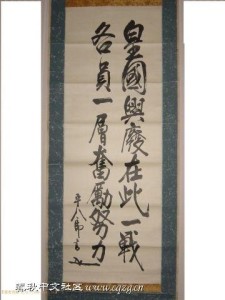 皇國興廢在此一戰
各員一層奮勵努力
平八郎書
春秋中文社區 www.cqzg.cn